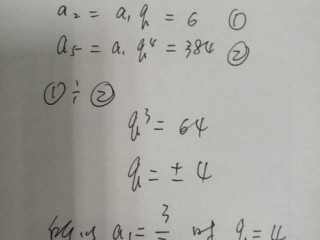 a₂ = a₁ q = 6 ①
a₅ = a₁ q⁴ = 384 ②
① ÷ ②
q³ = 64
q = ± 4
所以 a₁ = 3/2 时 q = 4